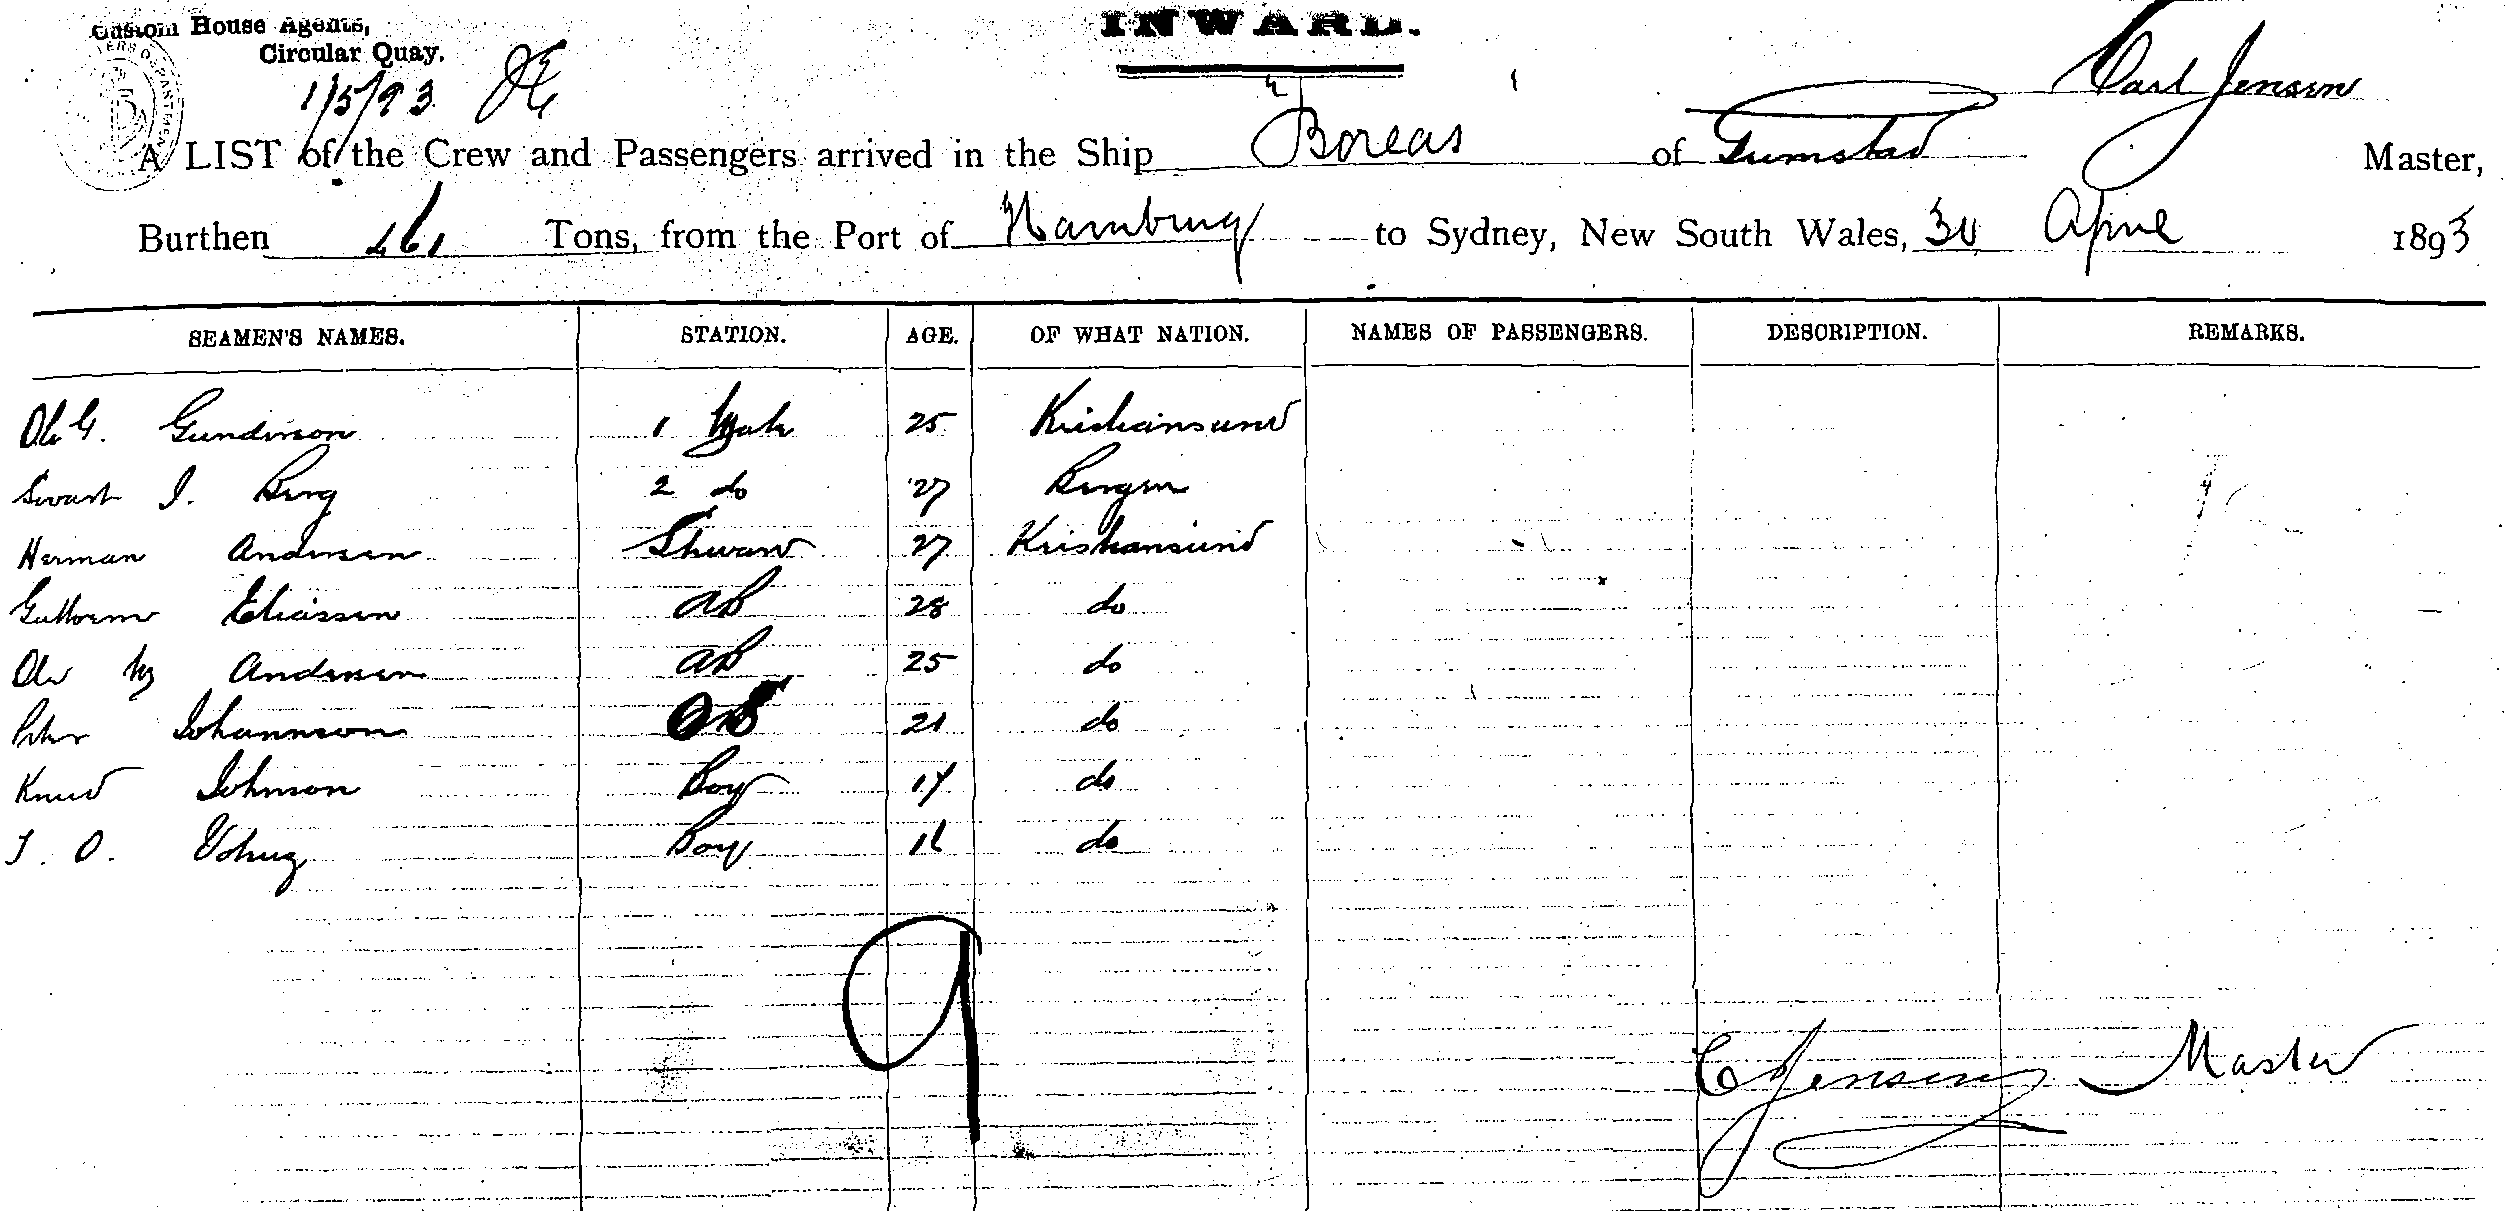 Custom House Agents,
Circular Quay.
1/5/93
INWARD.
Carl Jensen
A LIST of the Crew and Passengers arrived in the Ship Boreas of Master,
Burthen 461 Tons, from the Port of Hamburg to Sydney, New South Wales, 30 April 1893
SEAMEN'S NAMES. STATION. AGE. OF WHAT NATION. NAMES OF PASSENGERS. DESCRIPTION. REMARKS.
Ole G. Gunderson 1 Mate 25 Kristiansund
I. Berg 2 do 27 Bergen
Herman Andersen Steward 27 Kristiansund
Guttorm Eliassen AB 28 do
Ole M Andersen AB 25 do
Peter Johannson OS 21 do
Knud Johnson Boy 17 do
J. O. Boy 16 do
9
C Jensen Master